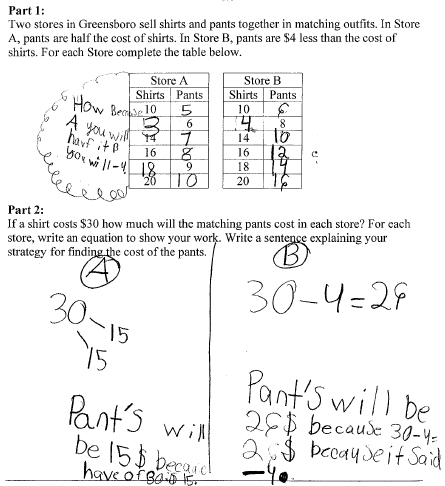 Part 1:
Two stores in Greensboro sell shirts and pants together in matching outfits. In Store
A, pants are half the cost of shirts. In Store B, pants are $4 less than the cost of
shirts. For each Store complete the table below.
Store A
Shirts Pants
10 5
3 6
14 7
16 8
18 9
20 10
Store B
Shirts Pants
10 6
4 8
14 10
16 12
18 14
20 16
How Because
A you will
harf it B
you will -4
Part 2:
If a shirt costs $30 how much will the matching pants cost in each store? For each
store, write an equation to show your work. Write a sentence explaining your
strategy for finding the cost of the pants.
A
30
15
15
Pant's will
be 15$
have of 30 15.
B
30-4=26
Pant's will be
26$ because 30-4=
26$ becauseit Said
-4.